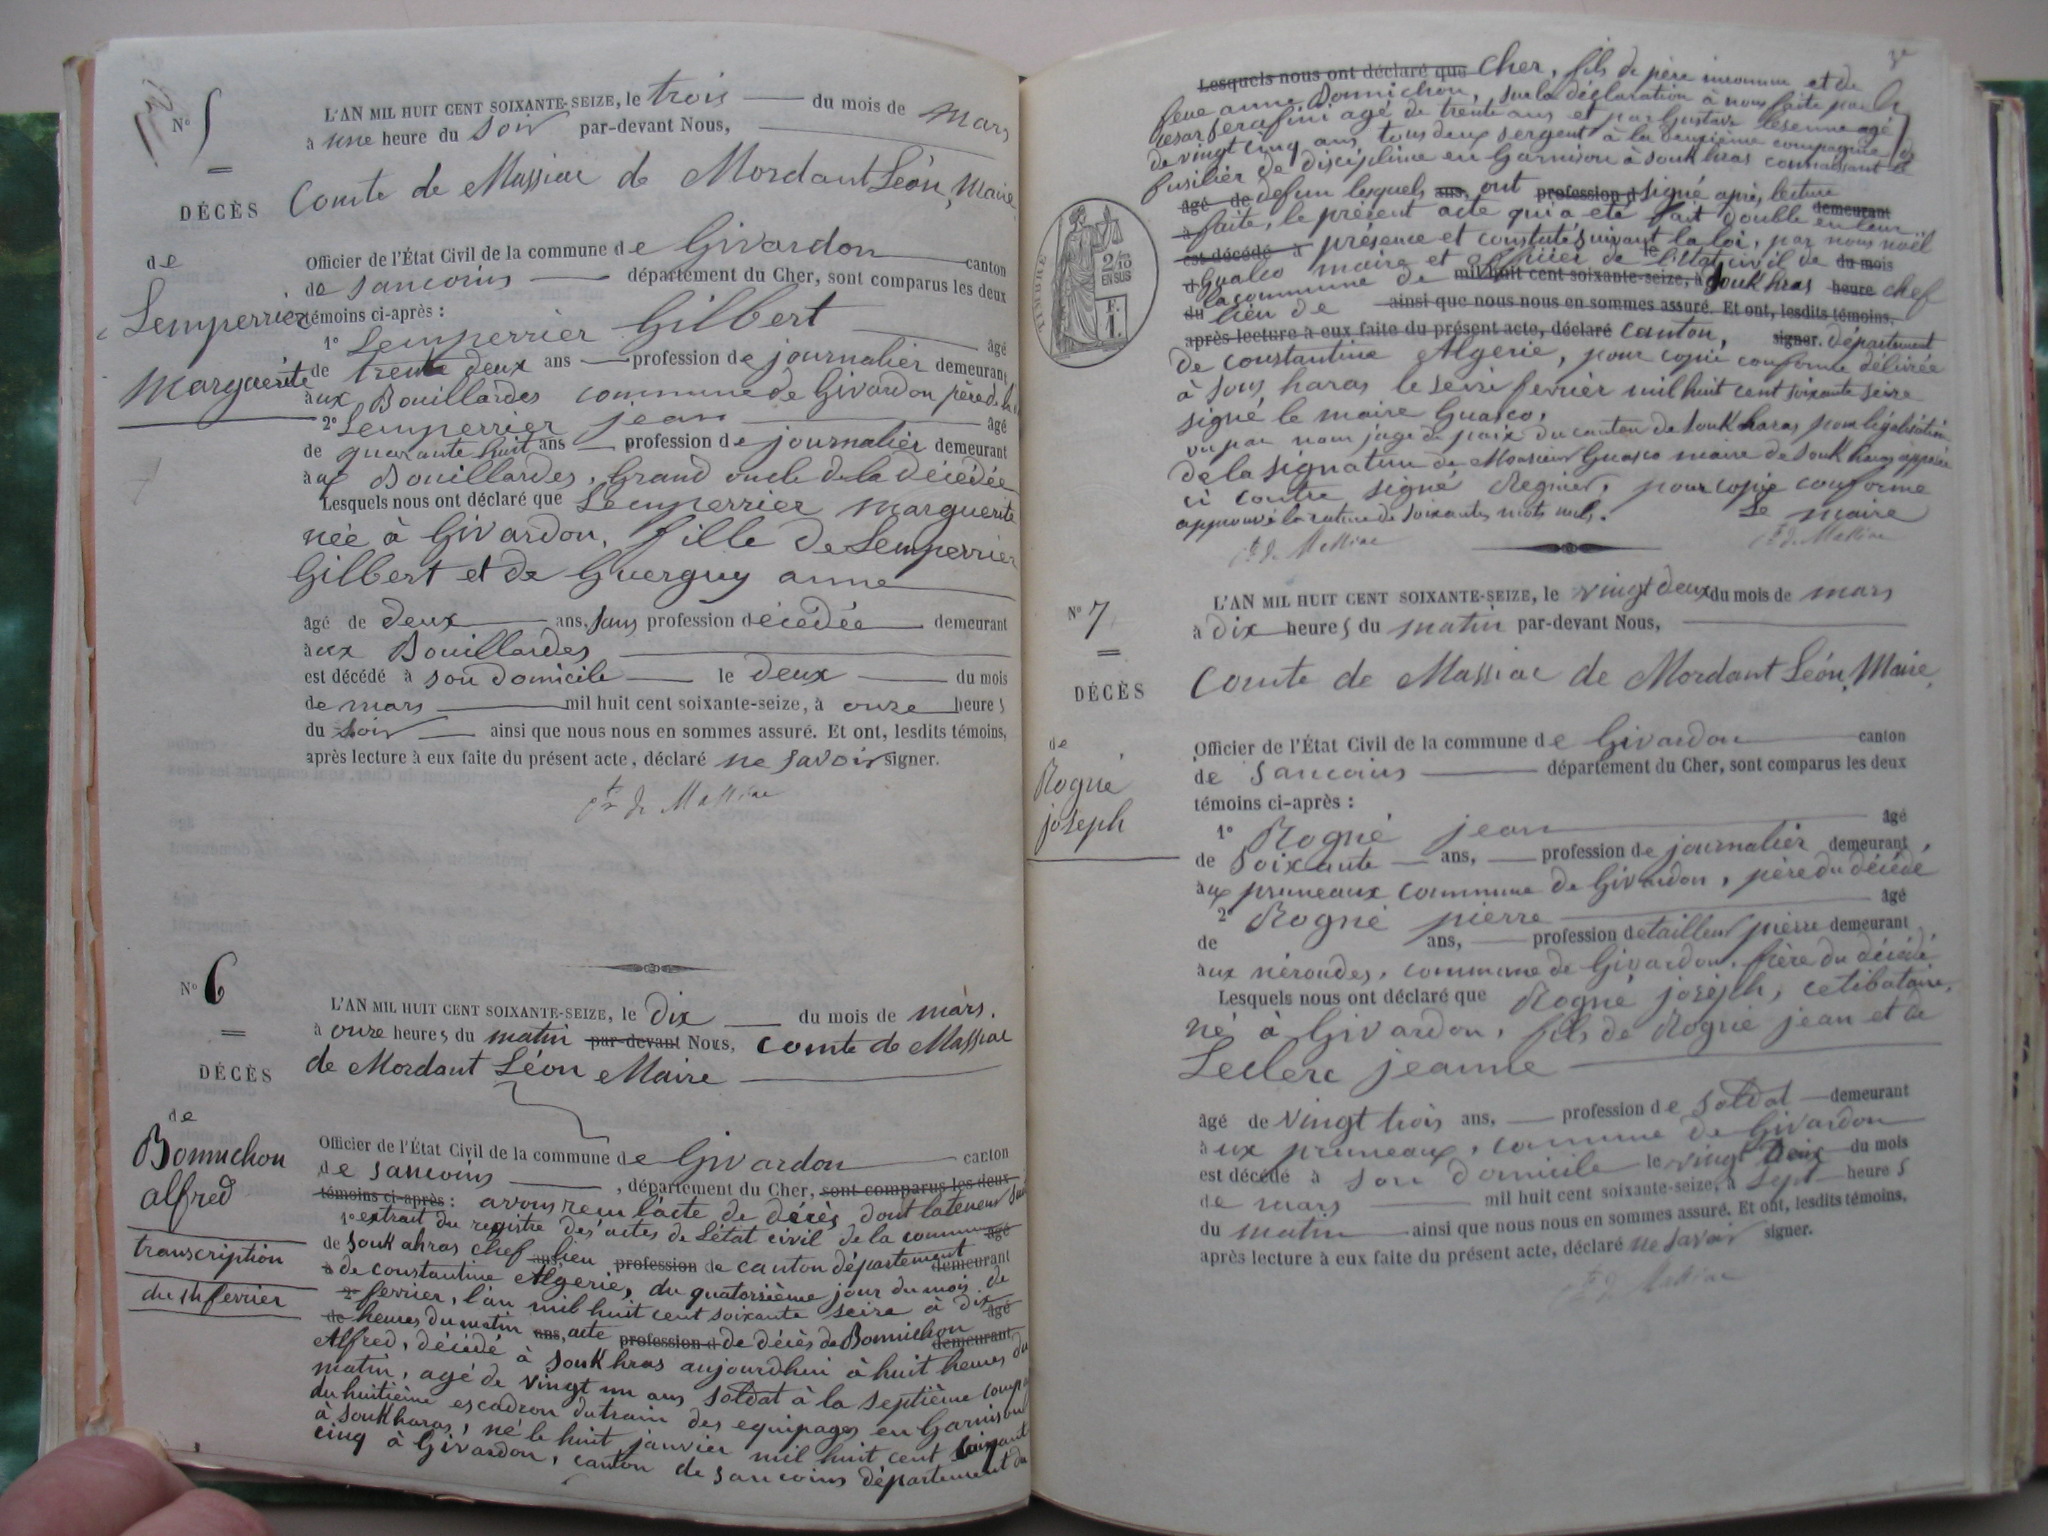 N° 5
DÉCÈS
de
Lemperrier
Marguerite
L'AN MIL HUIT CENT SOIXANTE-SEIZE, le trois du mois de mars
à une heure du soir par-devant Nous,
Comte de Massiac de Mordant Léon, Maire
Officier de l'État Civil de la commune de Givardon canton
de Sancoins département du Cher, sont comparus les deux
témoins ci-après :
1° Lemperrier Gilbert âgé
de trente deux ans profession de journalier demeurant
aux Bouillardes commune de Givardon père de la
2° Lemperrier jean âgé
de quarante huit ans profession de journalier demeurant
aux Bouillardes, Grand oncle de la décédée
Lesquels nous ont déclaré que Lemperrier marguerite
née à Givardon, fille de Lemperrier
Gilbert et de Guerguy anne
âgé de deux ans, sans profession décédée demeurant
aux Bouillardes
est décédé à son domicile le deux du mois
de mars mil huit cent soixante-seize, à onze heures
du soir ainsi que nous nous en sommes assuré. Et ont, lesdits témoins,
après lecture à eux faite du présent acte, déclaré ne savoir signer.
Cte de Massiac
N° 6
DÉCÈS
de
Bonnichon
alfred
transcription
du 14 fevrier
L'AN MIL HUIT CENT SOIXANTE-SEIZE, le dix du mois de mars.
à onze heures du matin par-devant Nous, comte de Massiac
de Mordant Léon Maire
Officier de l'État Civil de la commune de Givardon canton
de Sancoins, département du Cher, sont comparus les deux
témoins ci-après : avons remis l'acte de décès dont la teneur suit
1° extrait du registre des actes de L'état civil de la commune âgé
de Souk ahras chef ans, lieu profession de canton département
à de constantine Algerie, du quatorzième jour du mois de demeurant
2° fevrier, l'an mil huit cent soixante seize à dix âgé
de heures du matin ans, acte profession d de décès de Bonnichon demeurant
Alfred, décédé à Soukhras aujourdhui à huit heures du
matin, agé de vingt un ans soldat à la septième comp
du huitième escadron du train des equipages en Garnison
à Soukharas, né le huit janvier mil huit cent soixante
cinq à Givardon, canton de sancoins département du
Lesquels nous ont déclaré que Cher, fils de père inconnu et de
feue anne Bonnichon, sur la déclaration à nous faite par
Cesar Serafini agé de trente ans et par Gustave Lesenne agé
de vingt cinq ans tous deux sergent à la deuxième compagnie de
fusilier de discipline en Garnison à Soukhras connaissant le
âgé de defun lesquels ans, ont profession d signé après lecture demeurant
à faite, le présent acte qui a eté fait double en leur
est décédé à présence et constaté suivant la loi, par nous noël
d Guasco maire et officier de l'état civil de du mois
la commune de mil huit cent soixante-seize, à Soukhras heure chef
du lieu de ainsi que nous nous en sommes assuré. Et ont, lesdits témoins,
après lecture à eux faite du présent acte, déclaré canton, signer. département
de constantine Algerie, pour copie conforme délivrée
à Souk haras le seize fevrier mil huit cent soixante seize
signé le maire Guasco,
vu par nous juge de paix du canton de Soukharas pour légalisation
de la signature de Monsieur Guasco maire de Soukharas apposée
ci contre signé Regnier, pour copie conforme
approuvé la rature de soixante mots nuls. Le maire
Cte de Massiac Cte de Massiac
TIMBRE
2/10
EN SUS
N° 7
DÉCÈS
de
Rogné
joseph
L'AN MIL HUIT CENT SOIXANTE-SEIZE, le vingt deux du mois de mars
à dix heures du matin par-devant Nous,
Comte de Massiac de Mordant Léon, Maire
Officier de l'État Civil de la commune de Givardon canton
de Sancoins département du Cher, sont comparus les deux
témoins ci-après :
1° Rogné jean âgé
de soixante ans, profession de journalier demeurant
aux pruneaux commune de Givardon, père du décédé
2° Rogné pierre âgé
de ans, profession de tailleur pierre demeurant
aux néroudes, commune de Givardon. frère du décédé
Lesquels nous ont déclaré que Rogné joseph, celibataire,
né à Givardon, fils de Rogné jean et de
Leclerc jeanne
âgé de vingt trois ans, profession de soldat demeurant
aux pruneaux, commune de Givardon
est décédé à son domicile le vingt deux du mois
de mars mil huit cent soixante-seize, à sept heures
du matin ainsi que nous nous en sommes assuré. Et ont, lesdits témoins,
après lecture à eux faite du présent acte, déclaré ne savoir signer.
Cte de Massiac